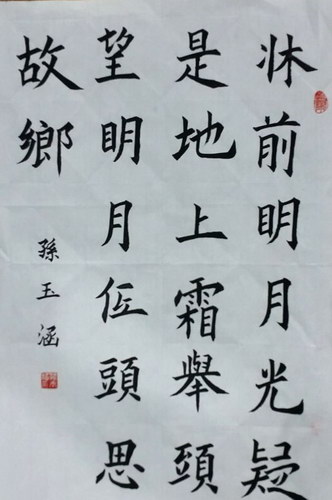 牀前明月光疑
是地上霜舉頭
望明月低頭思
故鄉
孫玉涵